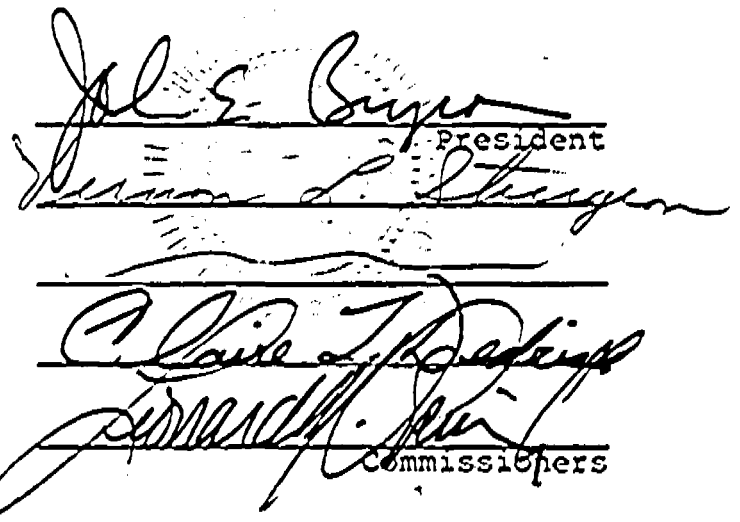 John E Bryson
President
Vernon L. Sturgeon
Claire T. Dedrick
Leonard M. Grimes
Commissioners